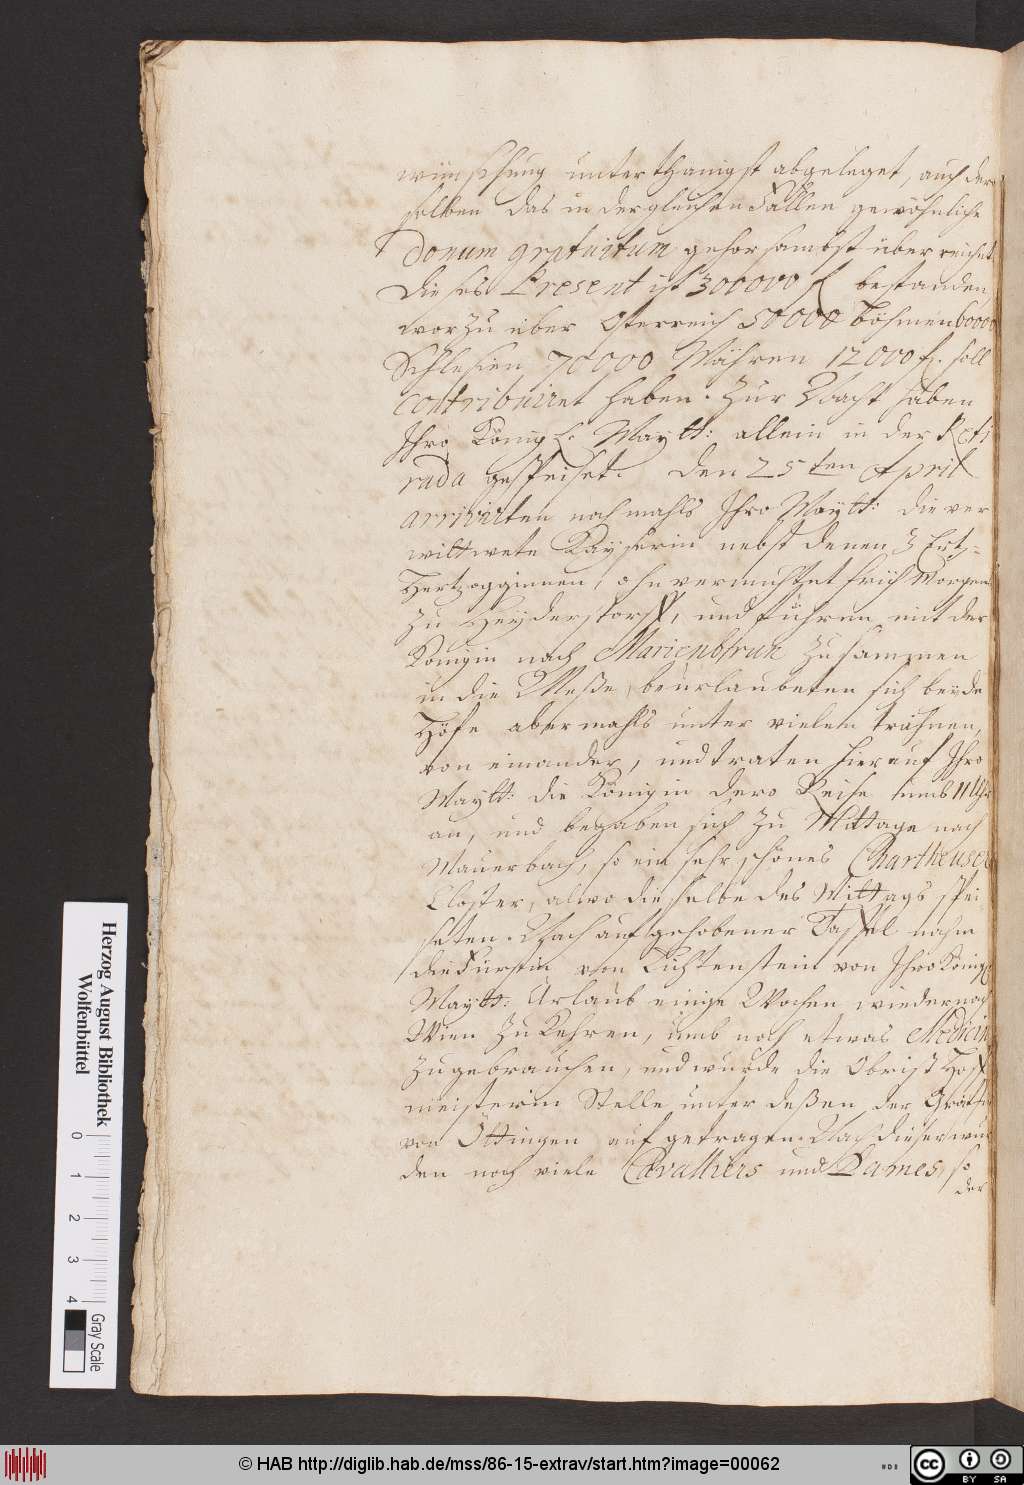 wünschung unterthänigst abgeleget, auch der
selben das in dergleichen Fällen gewöhnliche
donum gratuitum gehorsambst überreichet
dieses Present ist 300000 f bestanden,
worzu über Osterreich 50000 Böhmen 60000
Schlesien 70000 Mähren 12000 f. soll
contribuiret haben. Zur Nacht haben
Ihro Königl. Maytt: allein in der Reti
rada gespeiset. den 25ten April
arrivirten nochmahls Ihro Maytt: die ver
wittwete Kayserin nebst denen 3 Ertz-
Hertzogginnen, ohnvermuhtet früh Morgens
zu Heyderstorff, und führen mit der
Königin nach Marienbrun zusammen
in die Meße, beurlaubeten sich beyde
Höfe abermahls unter vielen trähnen,
von einander, und traten hierauf Ihro
Maytt: die Königin dero Reise umb 11 Uhr
an, und begaben sich zu Mittage nach
Mauerbach, so ein sehr schönes Chartheuser
Closter, allwo dieselbe des Mittags spei
seten. Nach aufgehobener Taffel nahm
die Fürstin von Lichtenstein von Ihro Königl
Maytt: Urlaub einige Wochen wieder nach
Wien zu Kehren, umb noch etwas Medicin
zugebrauchen, und wurde die Obrist Hoff
meisterin Stelle unter deßen der Gräfin
von Öttingen aufgetragen. Nach dieser wur
den noch viele Cavalliers und Dames, so
der
Herzog August Bibliothek
Wolfenbüttel
0 1 2 3 4
Gray Scale
© HAB http://diglib.hab.de/mss/86-15-extrav/start.htm?image=00062
CC BY SA